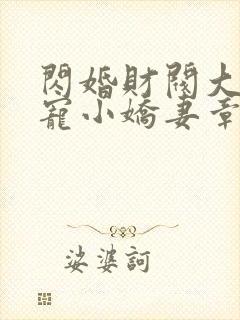 閃婚財閥大
寵小嬌妻章
娑婆訶